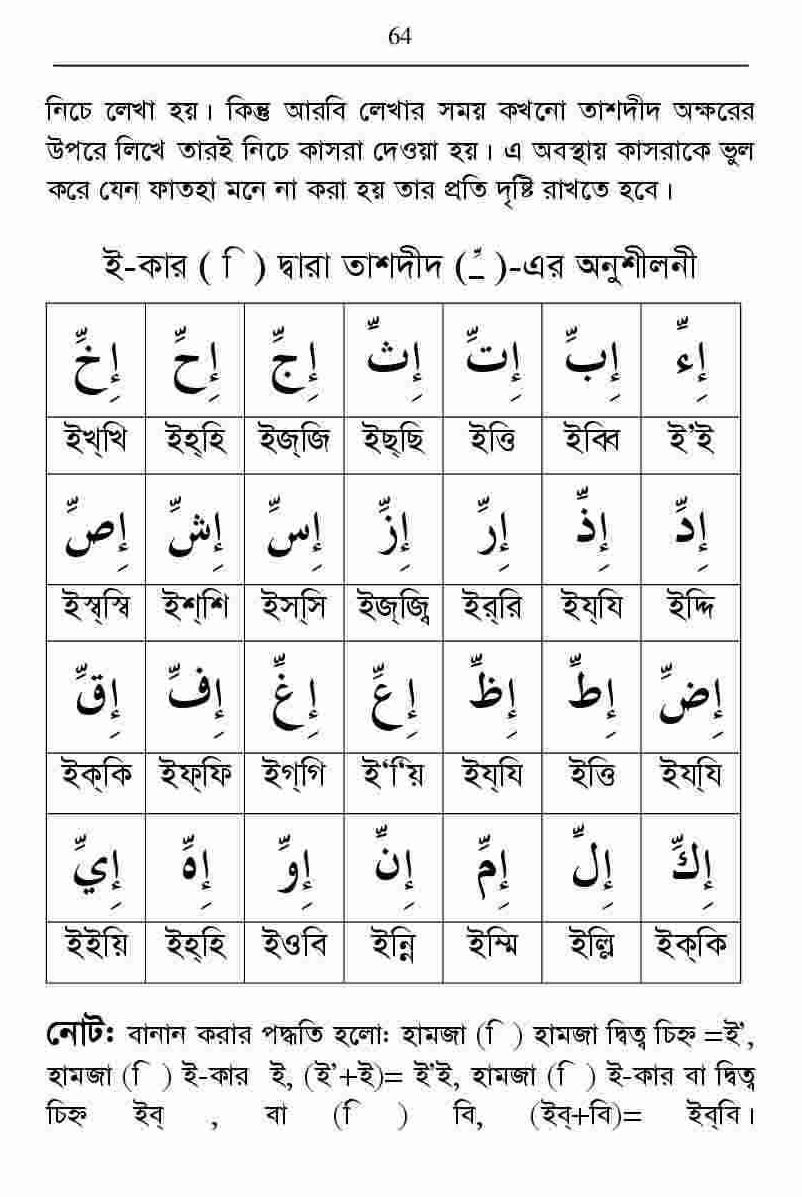 64
নিচে লেখা হয়। কিন্তু আরবি লেখার সময় কখনো তাশদীদ অক্ষরের
উপরে লিখে তারই নিচে কাসরা দেওয়া হয়। এ অবস্থায় কাসরাকে ভুল
করে যেন ফাতহা মনে না করা হয় তার প্রতি দৃষ্টি রাখতে হবে।
ই-কার ( ি ) দ্বারা তাশদীদ (ـّ )-এর অনুশীলনী
إِءِّ إِبِّ إِتِّ إِثِّ إِجِّ إِحِّ إِخِّ
ইখ্খি ইহ্হি ইজ্জি ইছ্ছি ইত্তি ইব্বি ই’ই
إِدِّ إِذِّ إِرِّ إِزِّ إِسِّ إِشِّ إِصِّ
ইস্বস্বি ইশ্শি ইস্সি ইজ্জ্বি ইর্‌রি ইয্যি ইদ্দি
إِضِّ إِطِّ إِظِّ إِعِّ إِغِّ إِفِّ إِقِّ
ইক্কি ইফ্ফি ইগ্গি ই‘ি‘য় ইয্যি ইত্তি ইয্যি
إِكِّ إِلِّ إِمِّ إِنِّ إِوِّ إِهِّ إِيِّ
ইইয়ি ইহ্হি ইওবি ইন্নি ইম্মি ইল্লি ইক্কি
নোট: বানান করার পদ্ধতি হলো: হামজা ( ি ) হামজা দ্বিত্ব চিহ্ন =ই’,
হামজা ( ি ) ই-কার ই, (ই’+ই)= ই’ই, হামজা ( ি ) ই-কার বা দ্বিত্ব
চিহ্ন ইব্ , বা ( ি ) বি, (ইব্+বি)= ইব্বি।